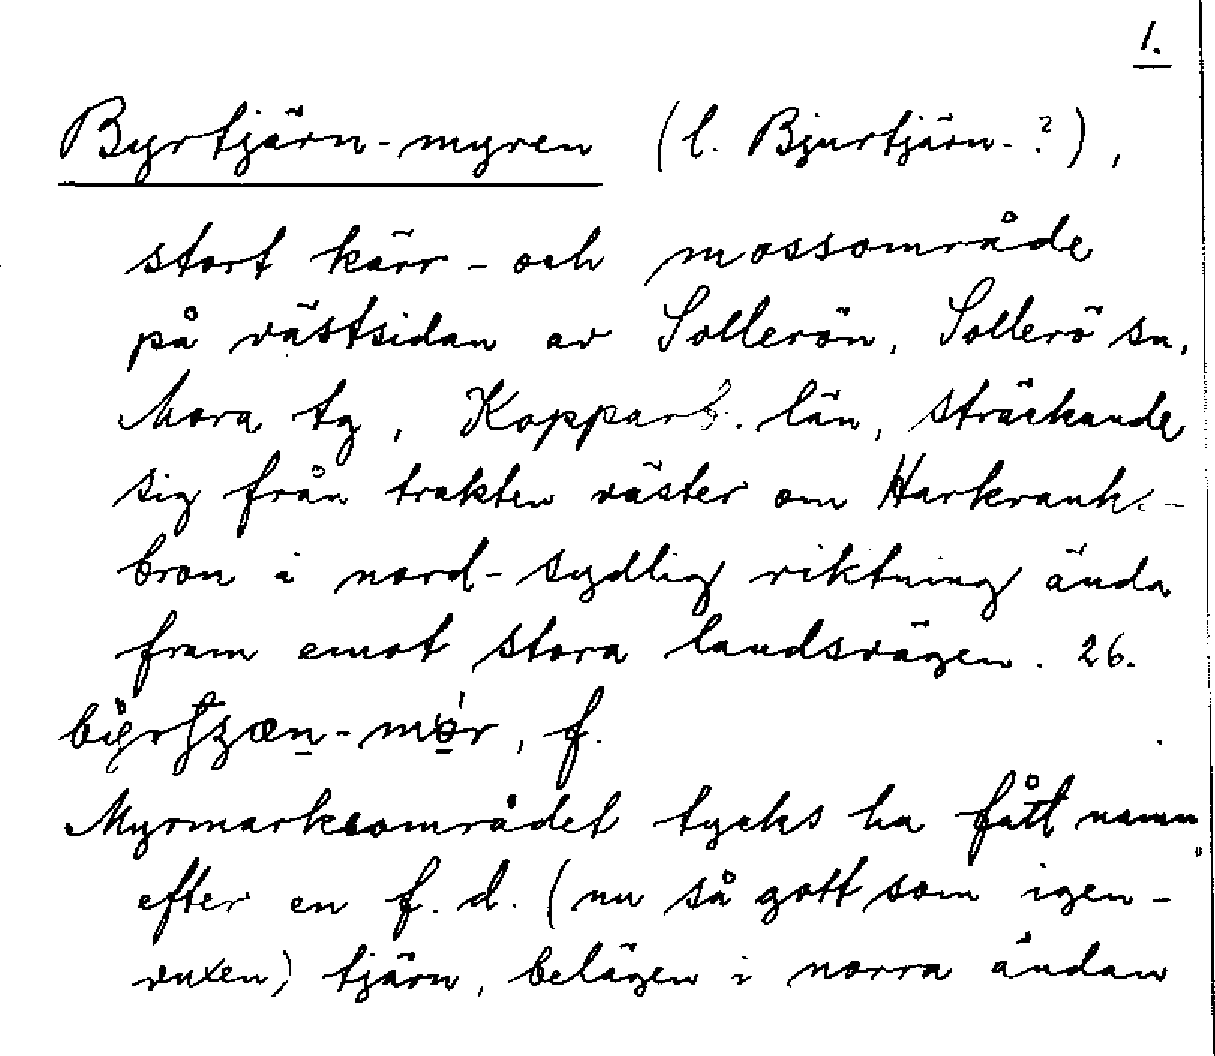 1.
Byrtjärn-myren (l. Bjurtjärn-?),
stort kärr- och mossområde
på västsidan av Sollerön, Sollerö sn,
Mora tg, Kopparb. län, sträckande
sig från trakten väster om Harkrank-
bron i nord-sydlig riktning ända
fram emot stora landsvägen. 26.
f.
Myrmarksområdet tycks ha fått namn
efter en f.d. (nu så gott som igen-
vuxen) tjärn, belägen i norra ändan